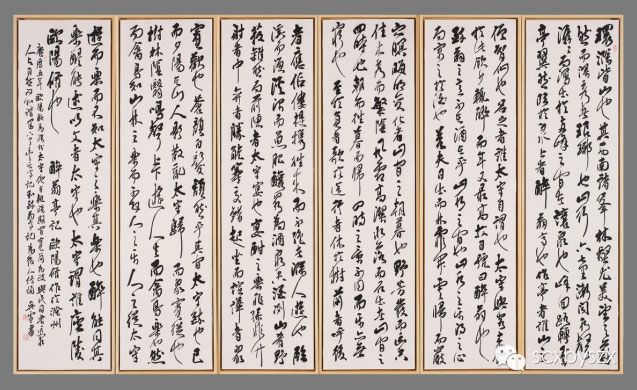 環滁皆山也其西南諸峰林壑尤美望之蔚
然而深秀者琅琊也山行六七里漸聞水聲
潺潺而瀉出於兩峰之間者釀泉也峰回路轉有
亭翼然臨於泉上者醉翁亭也作亭者誰山之
僧智仙也名之者誰太守自謂也太守與客來飲
於此飲少輒醉而年又最高故自號曰醉翁也
醉翁之意不在酒在乎山水之間也山水之樂得之心
而寓之於酒也若夫日出而林霏開雲歸而巖
穴暝晦明變化者山間之朝暮也野芳發而幽香
佳木秀而繁陰風霜高潔水落而石出者山間之
四時也朝而往暮而歸四時之景不同而樂亦無
窮也至於負者歌於途行者休於樹前者呼後
者應傴僂提攜往來而不絕者滁人遊也臨
溪而漁溪深而魚肥釀泉為酒泉香而酒洌山肴野
蔌雜然而前陳者太守宴也宴酣之樂非絲非竹
射者中弈者勝觥籌交錯起坐而喧嘩者眾
賓歡也蒼顏白髮頹然乎其間者太守醉也已
而夕陽在山人影散亂太守歸而賓客從也
樹林陰翳鳴聲上下遊人去而禽鳥樂也然
而禽鳥知山林之樂而不知人之樂人知從太守
遊而樂而不知太守之樂其樂也醉能同其
樂醒能述以文者太守也太守謂誰廬陵
歐陽修也 醉翁亭記 歐陽修作於滁州
慶曆五年歐陽修
scxbystx